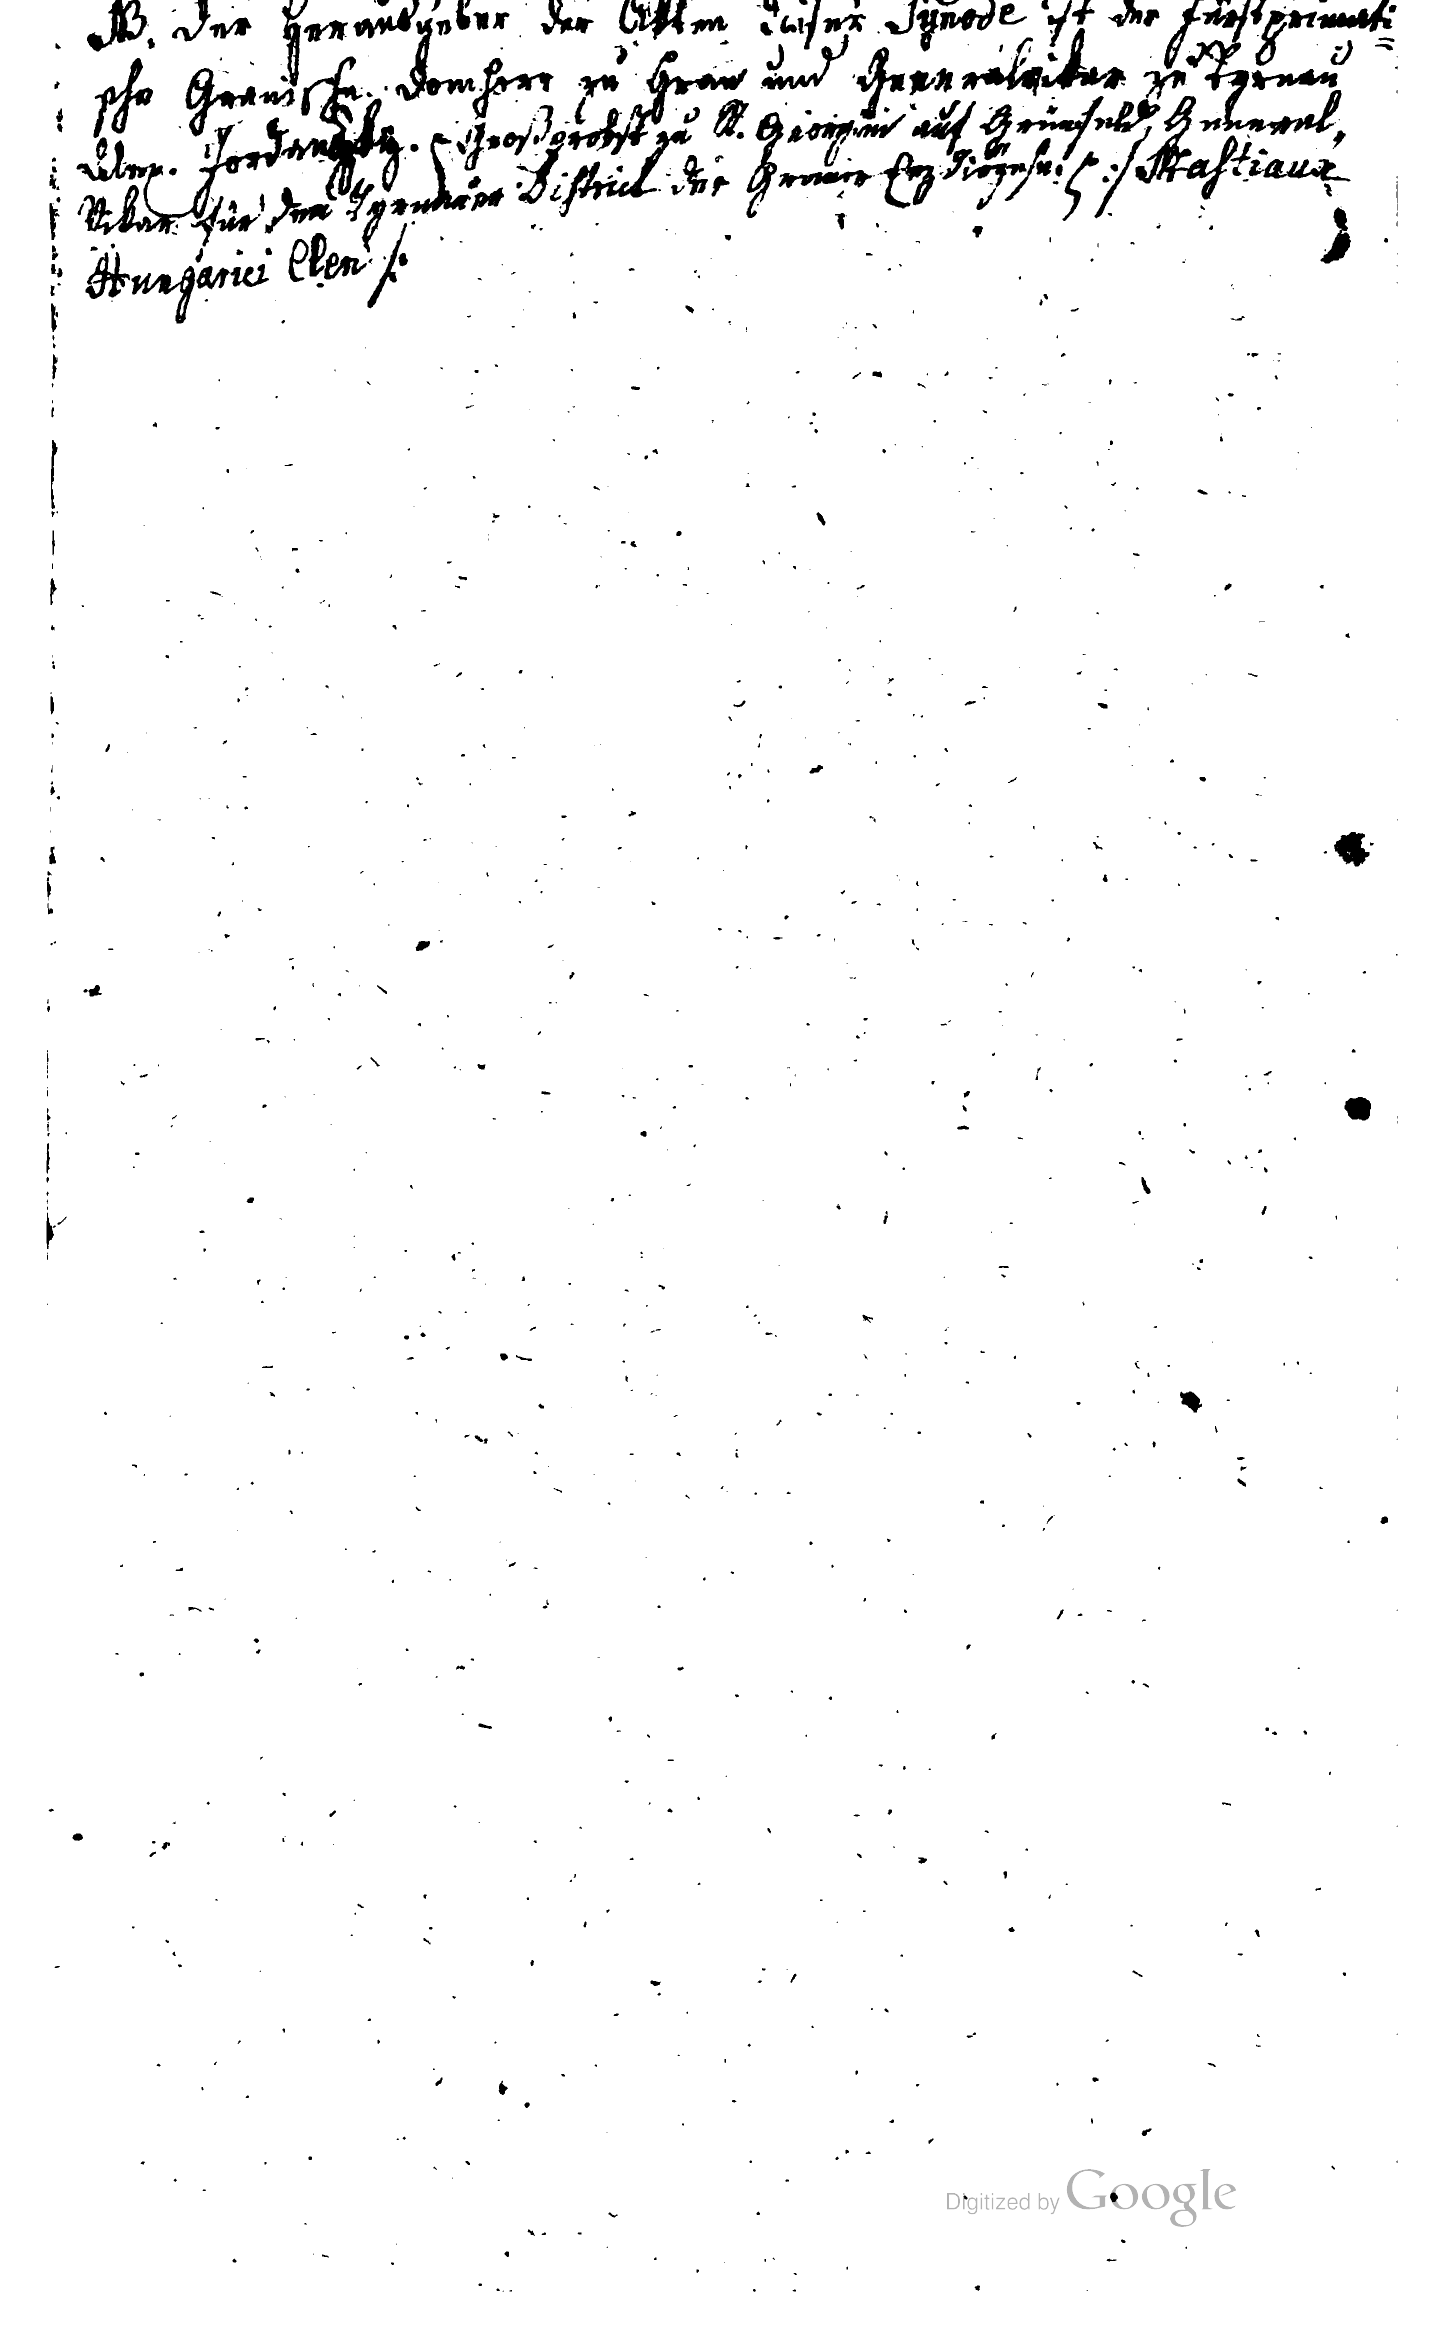 NB. Der Herausgeber der Akten dieser Synode ist der fürstprimati=
sche Granische Domherr zu Gran und Generalvikar zu Tyrnau
Alex. Jordanszky. Großprobst zu St. Georgen auf Grünfeld, General-
Vikar für den Tyrnauer District der Graner Erzdiözese. /:/ Mastiaux
Hungarici Cleri /:
Digitized by Google